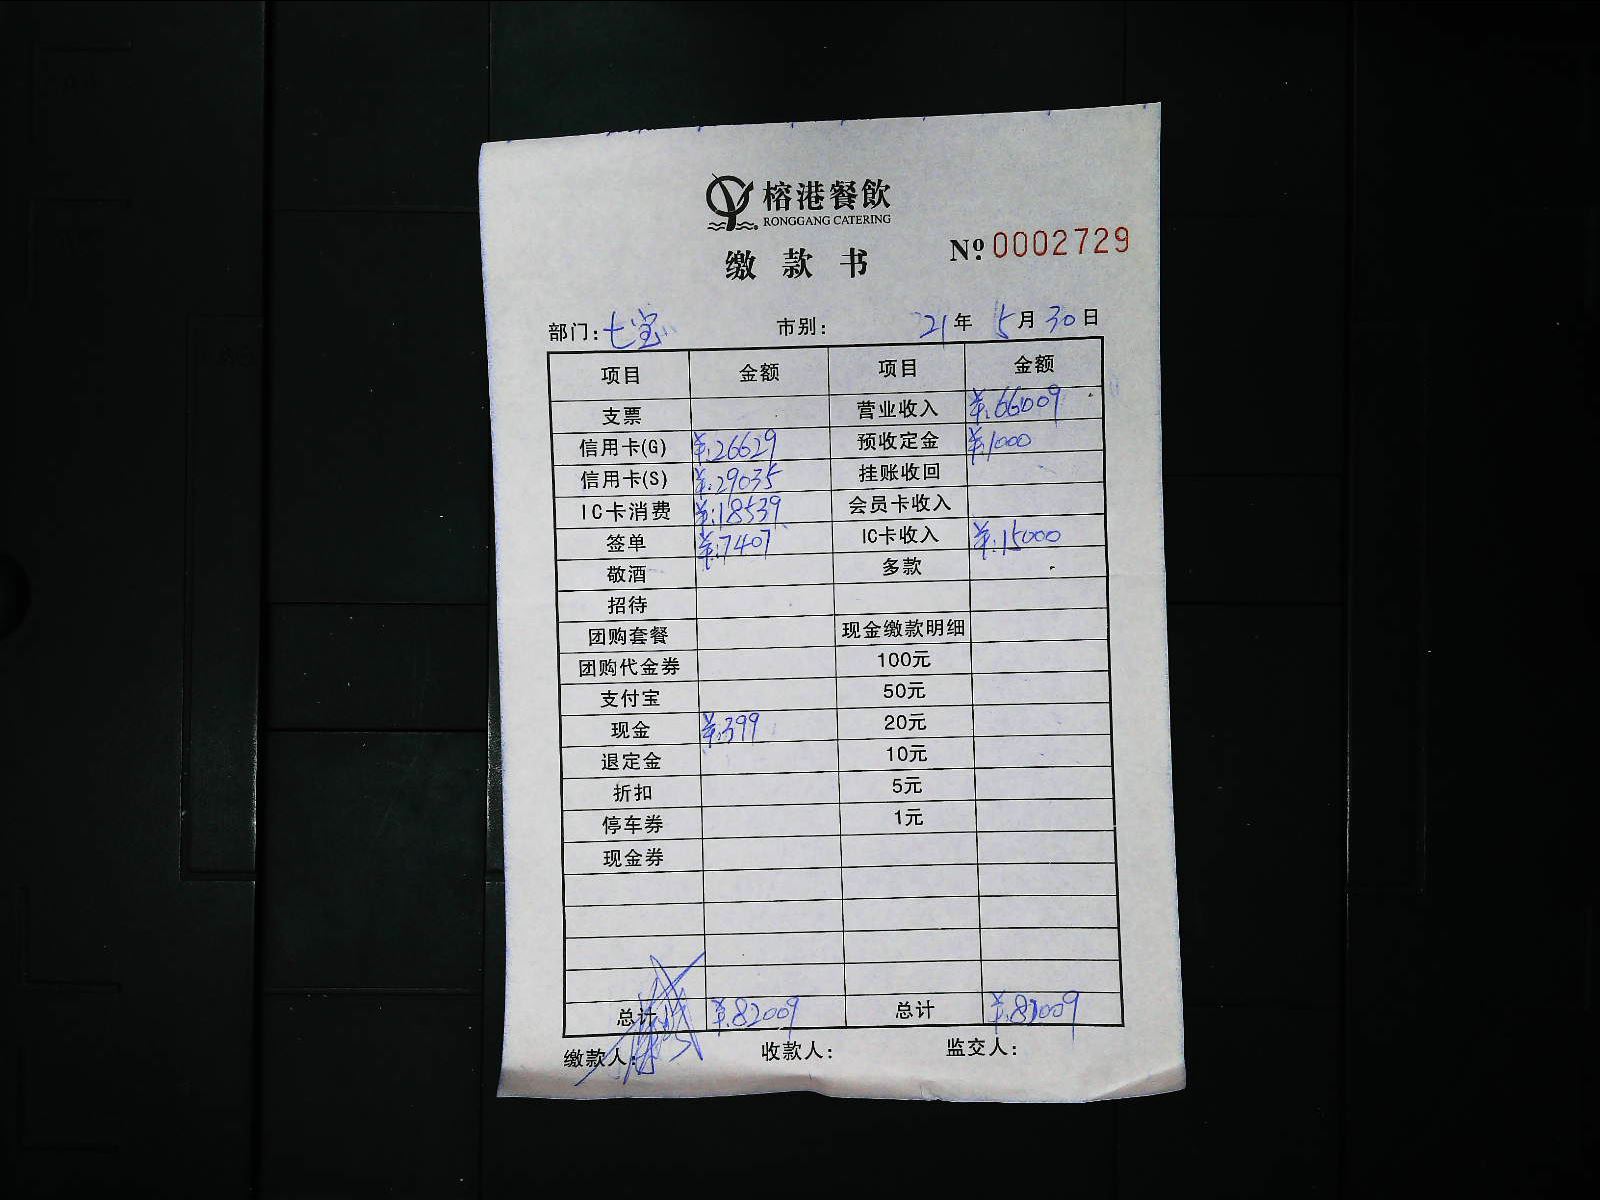 榕港餐飲
RONGGANG CATERING
缴款书 Nº:0002729
部门:七宝 市别: 21年 5月30日
项目 金额 项目 金额
支票 营业收入 ¥:66009
信用卡(G) ¥:26629 预收定金 ¥:1000
信用卡(S) ¥:29035 挂账收回
IC卡消费 ¥:18539 会员卡收入
签单 ¥:7407 IC卡收入 ¥:15000
敬酒 多款
招待
团购套餐 现金缴款明细
团购代金券 100元
支付宝 50元
现金 ¥:399 20元
退定金 10元
折扣 5元
停车券 1元
现金券
总计 ¥:82009 总计 ¥:82009
缴款人: 收款人: 监交人: